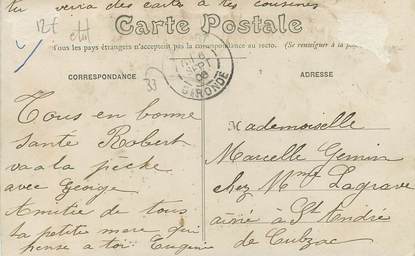 tu verra des carte à tes cousines
12f
Carte Postale
Tous les pays étrangers n'acceptent pas la correspondance au recto. (Se renseigner à la poste)
CORRESPONDANCE
33
SEPT
06
GIRONDE
ADRESSE
Tous en bonne
santé Robert
va a la pêche
avec George
Amitie de tous
ta petite mere qui
pense a toi Eugénie
Mademoiselle
Marcelle Gemin
chez Mme Lagrave
ainé à St André
de Cubzac